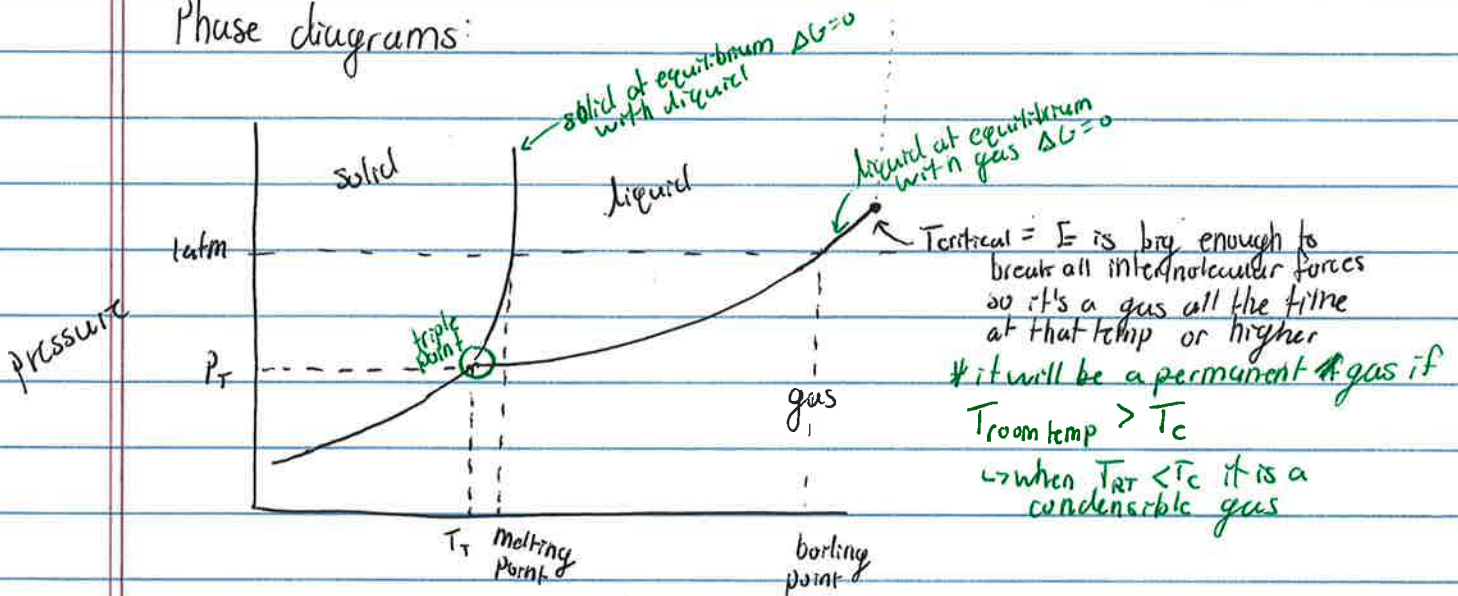 Phase diagrams:
solid at equilibrium ΔG=0
with liquid
liquid at equilibrium
with gas ΔG=0
solid
liquid
1atm
Tcritical = E is big enough to
break all intermolecular forces
so it's a gas all the time
at that temp or higher
pressure
triple
point
P_T
gas
* it will be a permanent gas if
T_room temp > T_C
↳ when T_RT < T_C it is a
condensible gas
T_T
melting
point
boiling
point